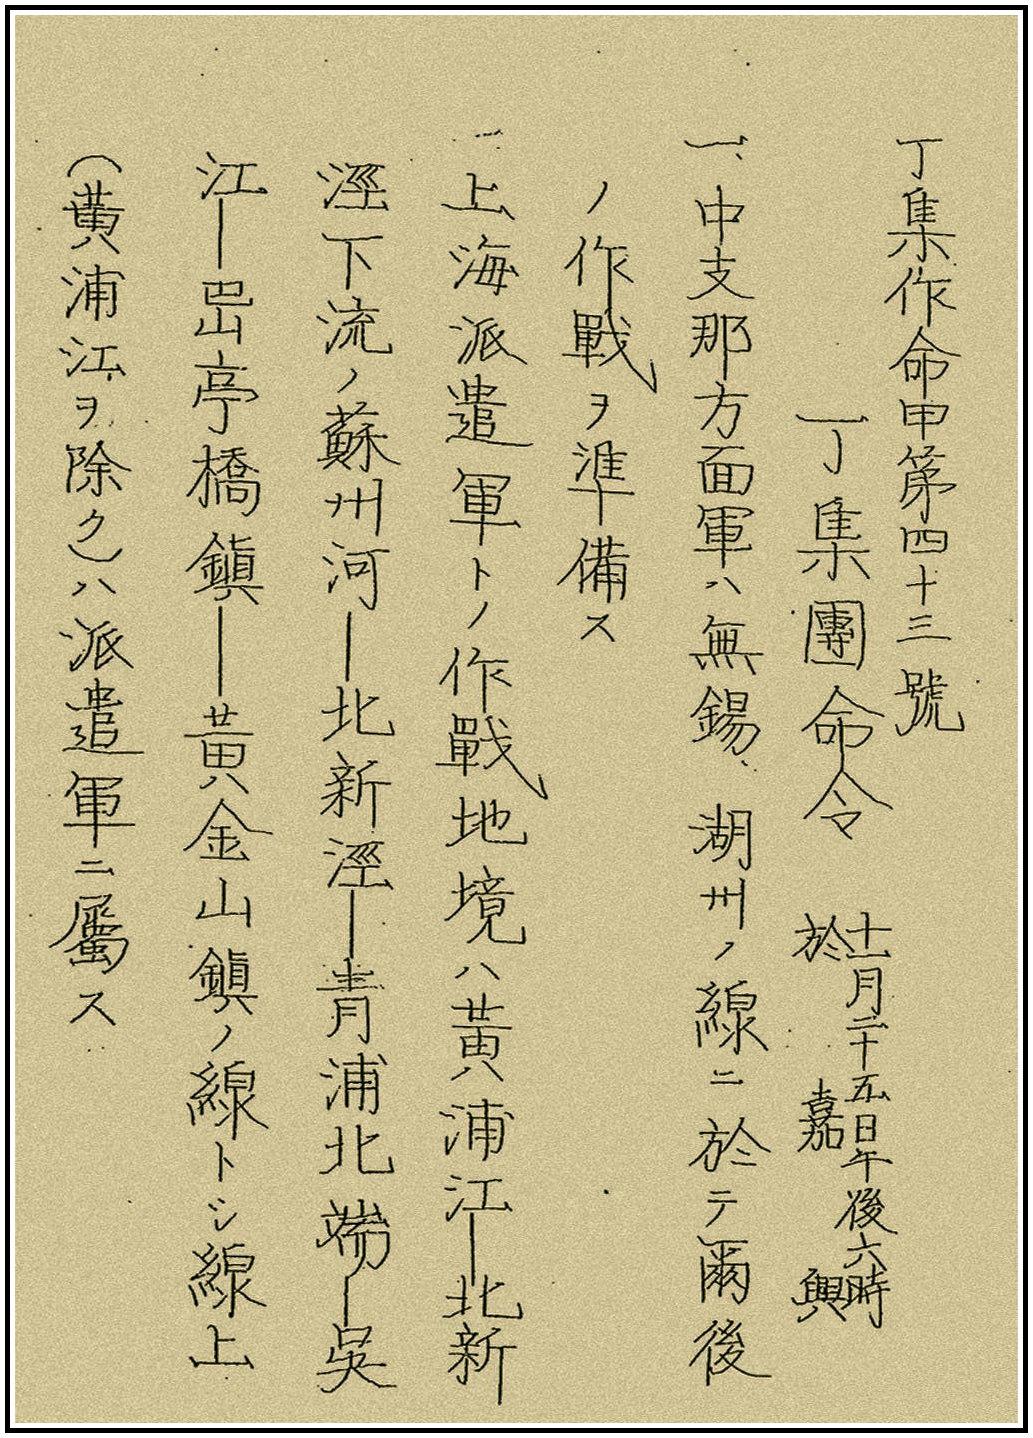 丁集作命甲第四十三號
丁集團命令
十一月二十五日午後六時
於嘉興
一、中支那方面軍ハ無錫、湖州ノ線ニ於テ爾後
ノ作戰ヲ準備ス
二、上海派遣軍トノ作戰地境ハ黃浦江―北新
涇下流ノ蘇州河―北新涇―青浦北端―吳
江―邑山亭橋鎭―黃金山鎭ノ線トシ線上
(黃浦江ヲ除ク)ハ派遣軍ニ屬ス